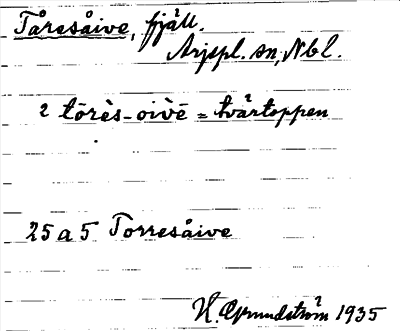 Tåresåive, fjäll.
Arjepl. sn, Nbl.
2 tōrès-oìvē = tvärtoppen
25 a 5 Torresåive
H. Grundström 1935